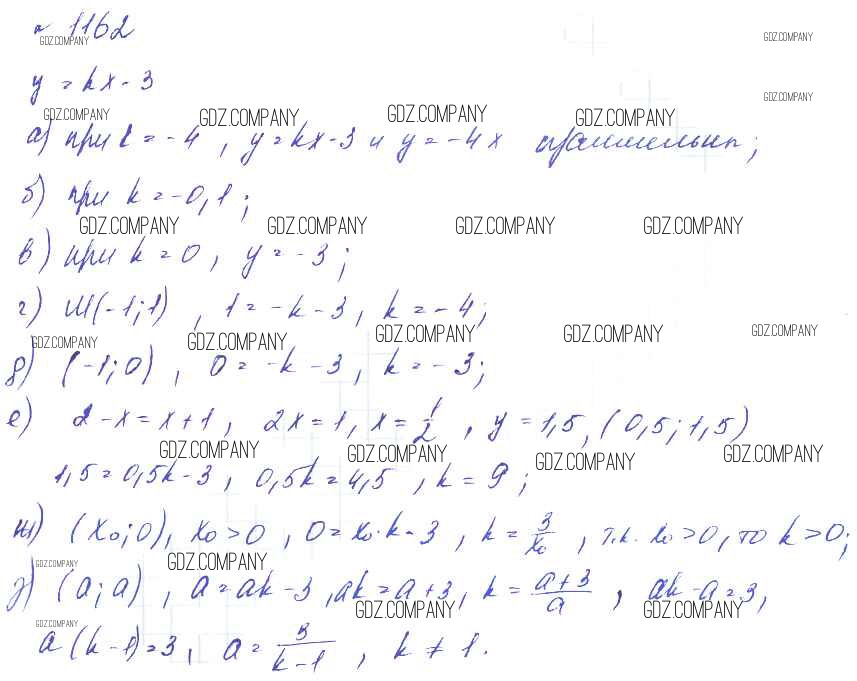 № 1162
GDZ.COMPANY GDZ.COMPANY
y = kx - 3
GDZ.COMPANY
GDZ.COMPANY GDZ.COMPANY GDZ.COMPANY GDZ.COMPANY
а) при k = -4, y = kx - 3 и y = -4x параллельны;
б) при k = -0,1;
GDZ.COMPANY GDZ.COMPANY GDZ.COMPANY GDZ.COMPANY
в) при k = 0, y = -3;
г) М(-1;1), 1 = -k - 3, k = -4;
GDZ.COMPANY GDZ.COMPANY GDZ.COMPANY GDZ.COMPANY GDZ.COMPANY
д) (-1;0), 0 = -k - 3, k = -3;
е) 2 - x = x + 1, 2x = 1, x = 1/2, y = 1,5, (0,5; 1,5)
GDZ.COMPANY GDZ.COMPANY GDZ.COMPANY GDZ.COMPANY
1,5 = 0,5k - 3, 0,5k = 4,5, k = 9;
ж) (x₀;0), x₀ > 0, 0 = x₀·k - 3, k = 3/x₀, т.к. x₀ > 0, то k > 0;
GDZ.COMPANY GDZ.COMPANY
з) (a;a), a = ak - 3, ak = a + 3, k = (a+3)/a, ak - a = 3,
GDZ.COMPANY GDZ.COMPANY GDZ.COMPANY
a(k-1) = 3, a = 3/(k-1), k ≠ 1.